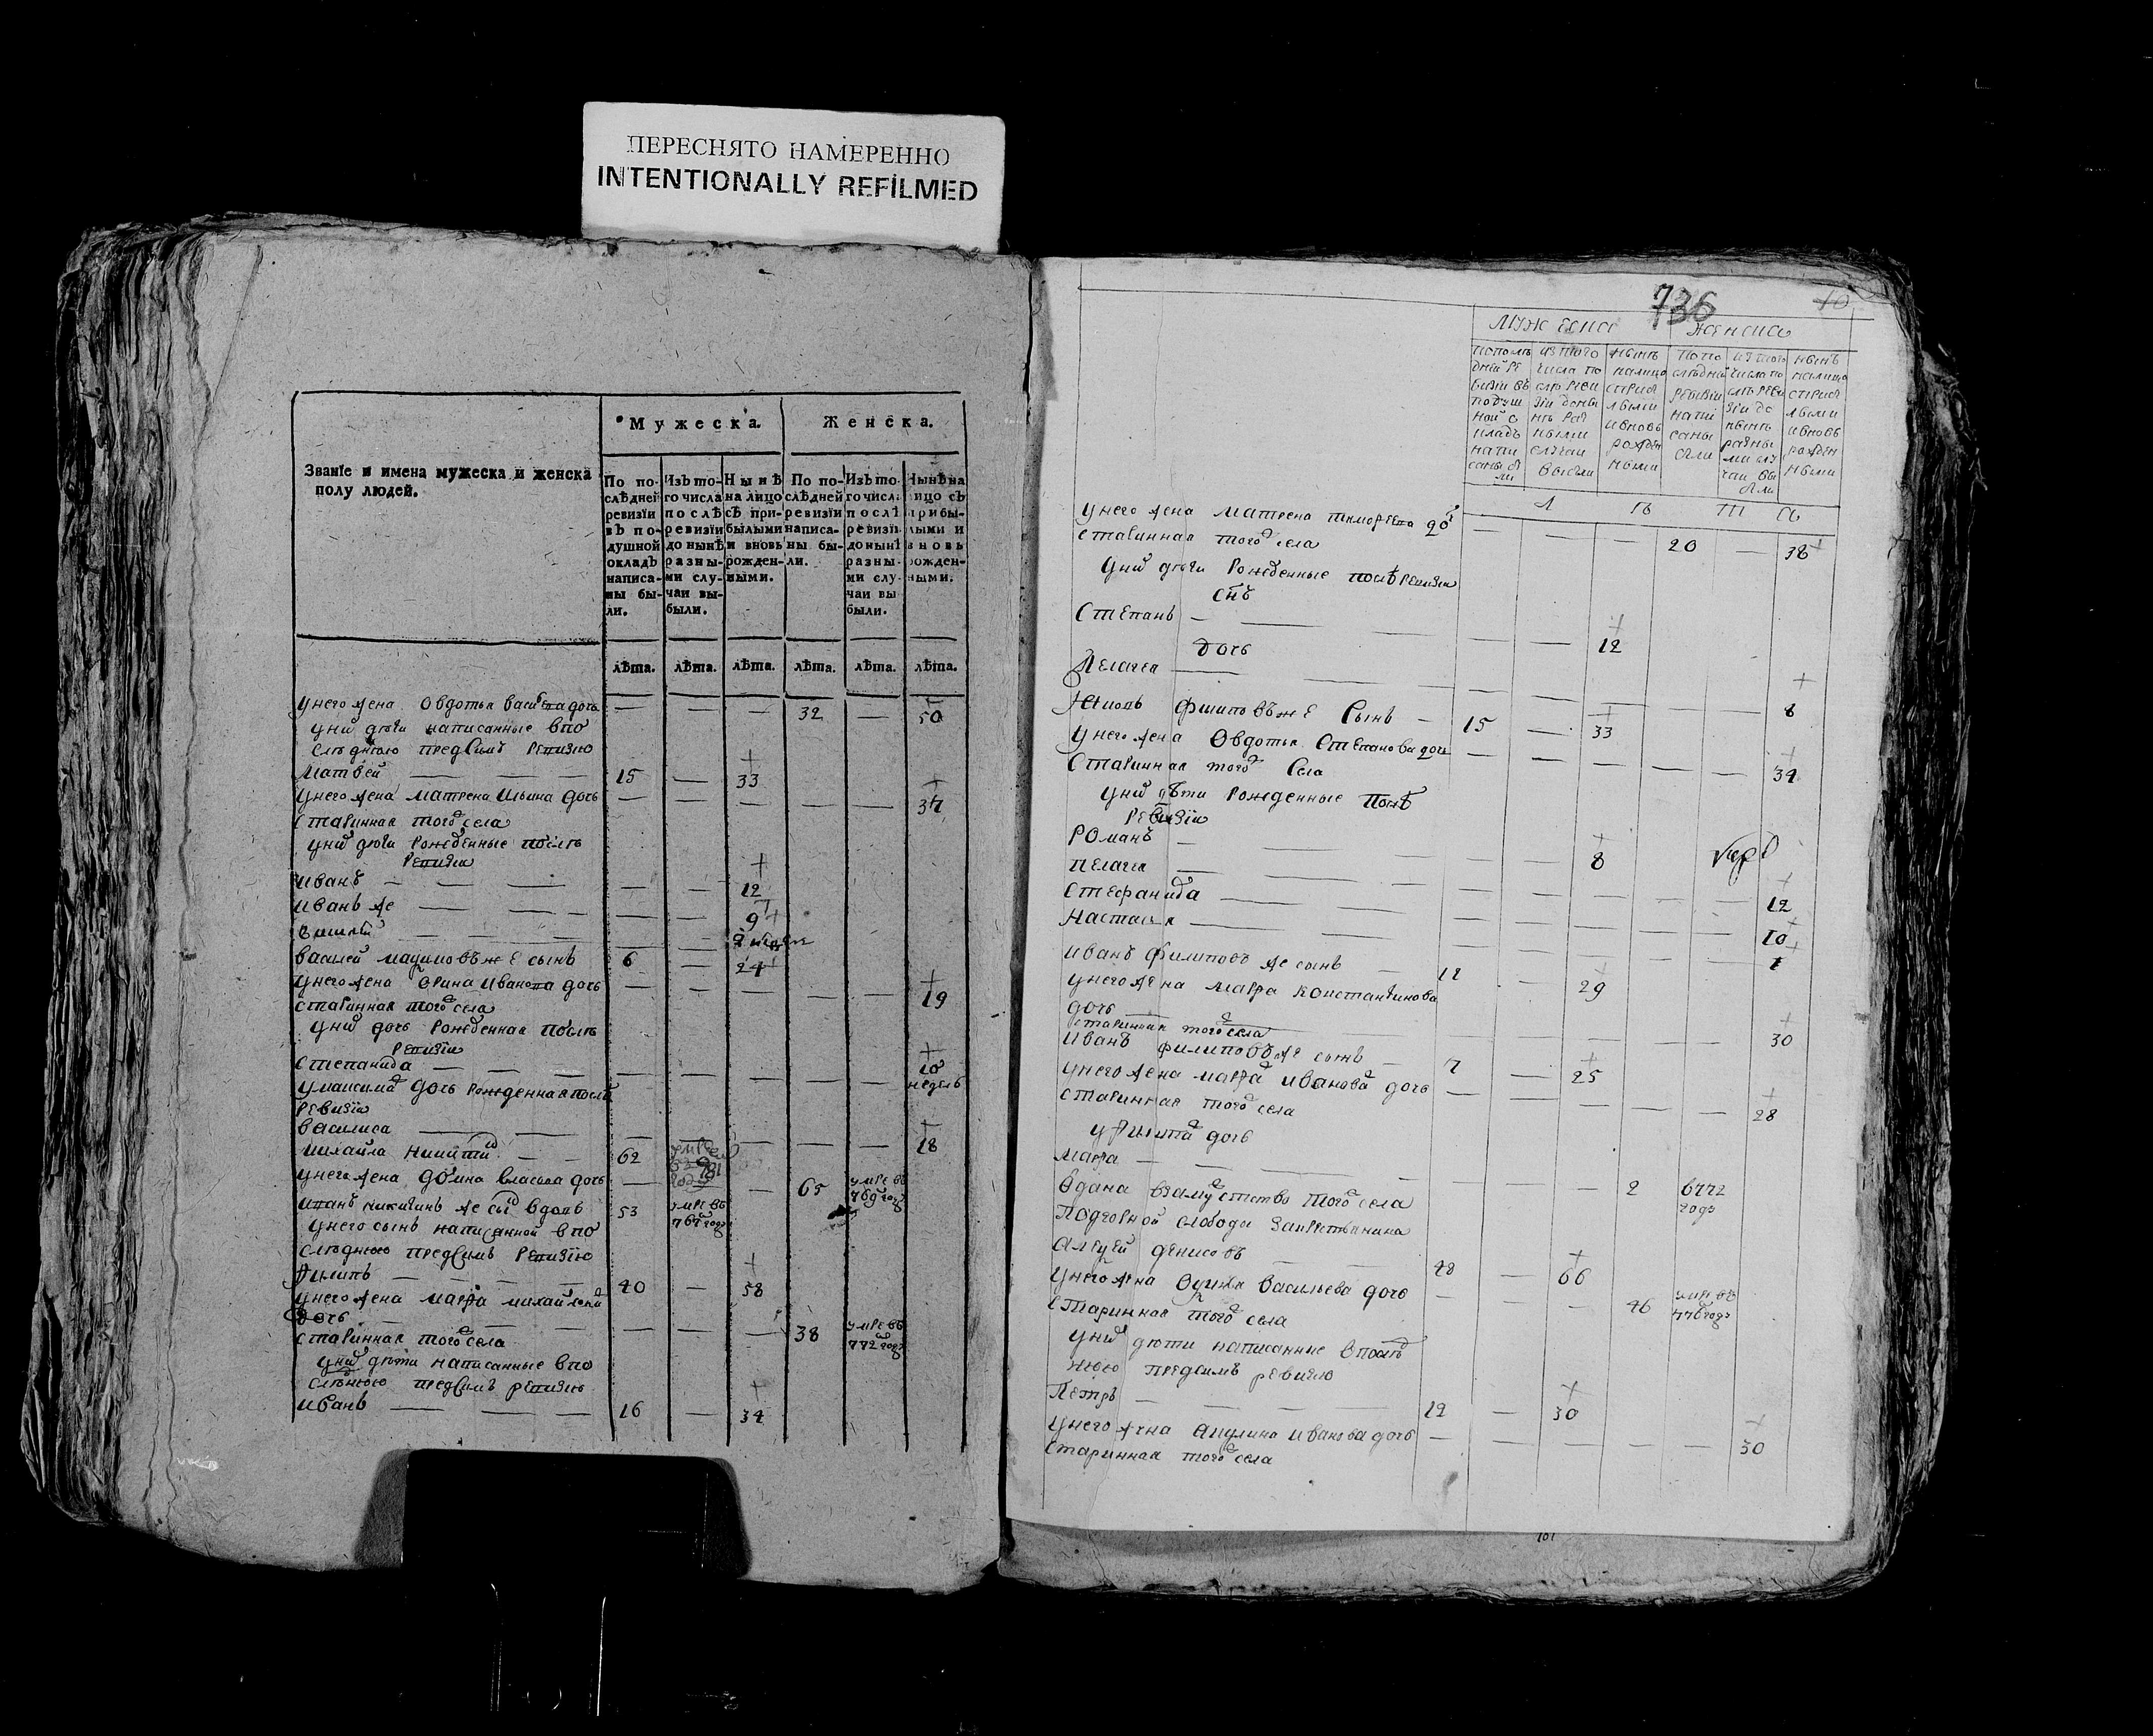 ПЕРЕСНЯТО НАМЕРЕННО
INTENTIONALLY REFILMED
Званїе и имена мужеска и женска
полу людей.
Мужеска.
Женска.
По по-
слѣдней
ревизїи
въ по-
душной
окладъ
написа-
ны бы-
ли.
Изъ то-
го числа
послѣ
ревизїи
до нынѣ
разны-
ми слу-
чаи вы-
были.
Нынѣ
на лицо
съ при-
былыми
и вновь
рожден-
ными.
По по-
слѣдней
ревизїи
написа-
ны бы-
ли.
Изъ то-
го числа
послѣ
ревизїи
до нынѣ
разны-
ми слу-
чаи вы
были.
Нынѣ на
лицо съ
прибы-
лыми и
вновь
рожден-
ными.
лѣта. лѣта. лѣта. лѣта. лѣта. лѣта.
у него жена Овдотья васи дочь — — — 32 — 50
у них дети написанные в по
следнюю пред сим ревизию
Матвей 15 — 33
у него жена матрена Ильина дочь — — — — — 37
старинная того села
у них дети рожденные после
ревизии
иванъ — — 12
иванъ же — — 9
— — 2
василей мацимовъ же сынъ 6 — 24
у него жена Орина Иванова дочь — — — — — 19
старинная того села
у них дочь рожденная после
ревизии
степанида — — — — — 10
недель
у максима дочь рожденная после
ревизии
василиса — — — — — 18
михайла никитин 62 781
у него жена домна власова дочь — — 65 умре въ
769 году
иванъ никитинъ же сын вдовъ 53 умре въ
767 году
у него сынъ написанной в по
следнюю пред сим ревизию
Филипъ 40 — 58
у него жена марфа михайлова
дочь — — — 38 умре въ
772 году
старинная того села
у них дети написанные в по
следнюю пред сим ревизию
иванъ 16 — 34
736
10
мужеска женска
по посл
дней ре
визии въ
подуш
ной о
кладъ
напи
саны бы
ли
из того
числа по
сле реви
зии до ны
не раз
ными
случаи
выбыли
ныне
налицо
с приб
лыми
и вновь
рожден
ными
по по
следней
ревизии
напи
саны
были
из того
числа по
сле реви
зии до
ныне
разны
ми слу
чаи вы
были
ныне
налицо
с приб
лыми
и вновь
рожден
ными
у него жена матрена тимофеева до
старинная того села — — 20 — 38
у них дети рожденные после ревизии
снъ
степанъ — — 12
дочь
Пелагея 8
филиповъ же сынъ 15 — 33
у него жена Овдотья степанова дочь
старинная того села — — — — — 34
у них дети рожденные после
ревизии
Романъ — — 8
пелагея 12
стефанида 10
настасья 1
иванъ филиповъ же сынъ 12 — 29
у него жена марфа константинова
дочь
старинная того села 30
иванъ филиповъ же сынъ 7 — 25
у него жена марфа иванова дочь
старинная того села — — — — — 28
у филипа дочь
марфа 2 в 772
году
Вдана в замужство того села
Подгорной слободы за крестьянина
алексей денисовъ 48 — 66
у него жена васильева дочь
старинная того села — — — 46 умре въ
776 году
у них дети написанные в послед
нюю пред сим ревизию
Петръ 12 — 30
у него жена акулина иванова дочь — — — — — 30
старинная того села